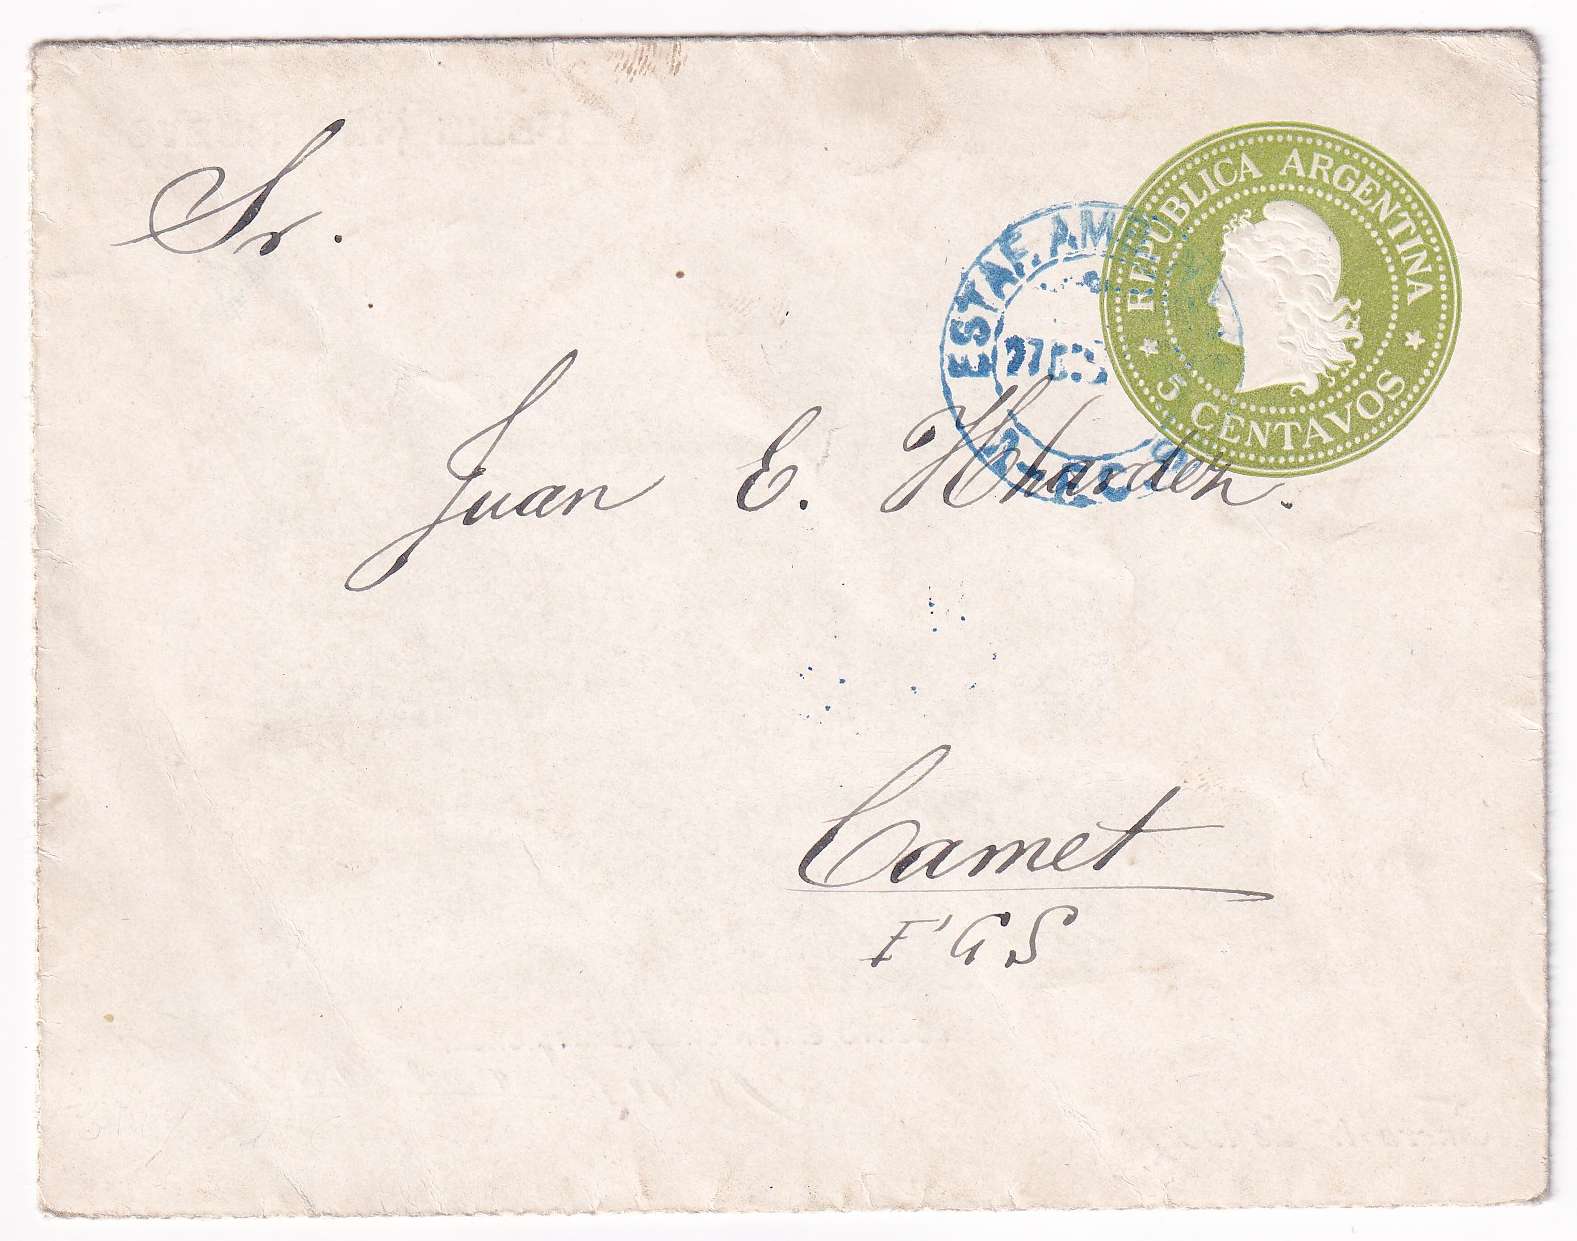 Sr.
REPUBLICA ARGENTINA
5 CENTAVOS
ESTAF. AMB
27 DIC
Juan E. Wharden.
Camet
F'GS